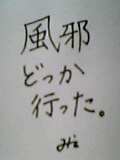 風邪
どっか
行った。
みに